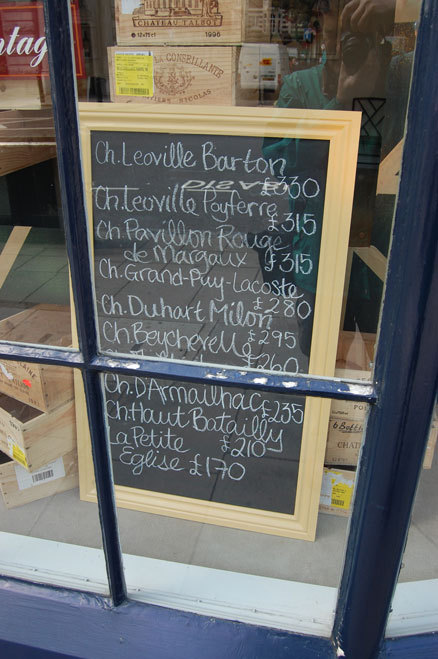 CHATEAU TALBOT
12x75cl
1996
LA CONSEILLANTE
NICOLAS
ntag
Ch. Leoville Barton
£330
Ch. Leoville Poyferre
£315
Ch. Pavillon Rouge
de Margaux £315
Ch. Grand-Puy-Lacoste
£280
Ch. Duhart Milon
£295
Ch Beychevelle
£260
Ch. D'Armailhac £235
Ch. Haut Batailly
La Petite £210
Eglise £170